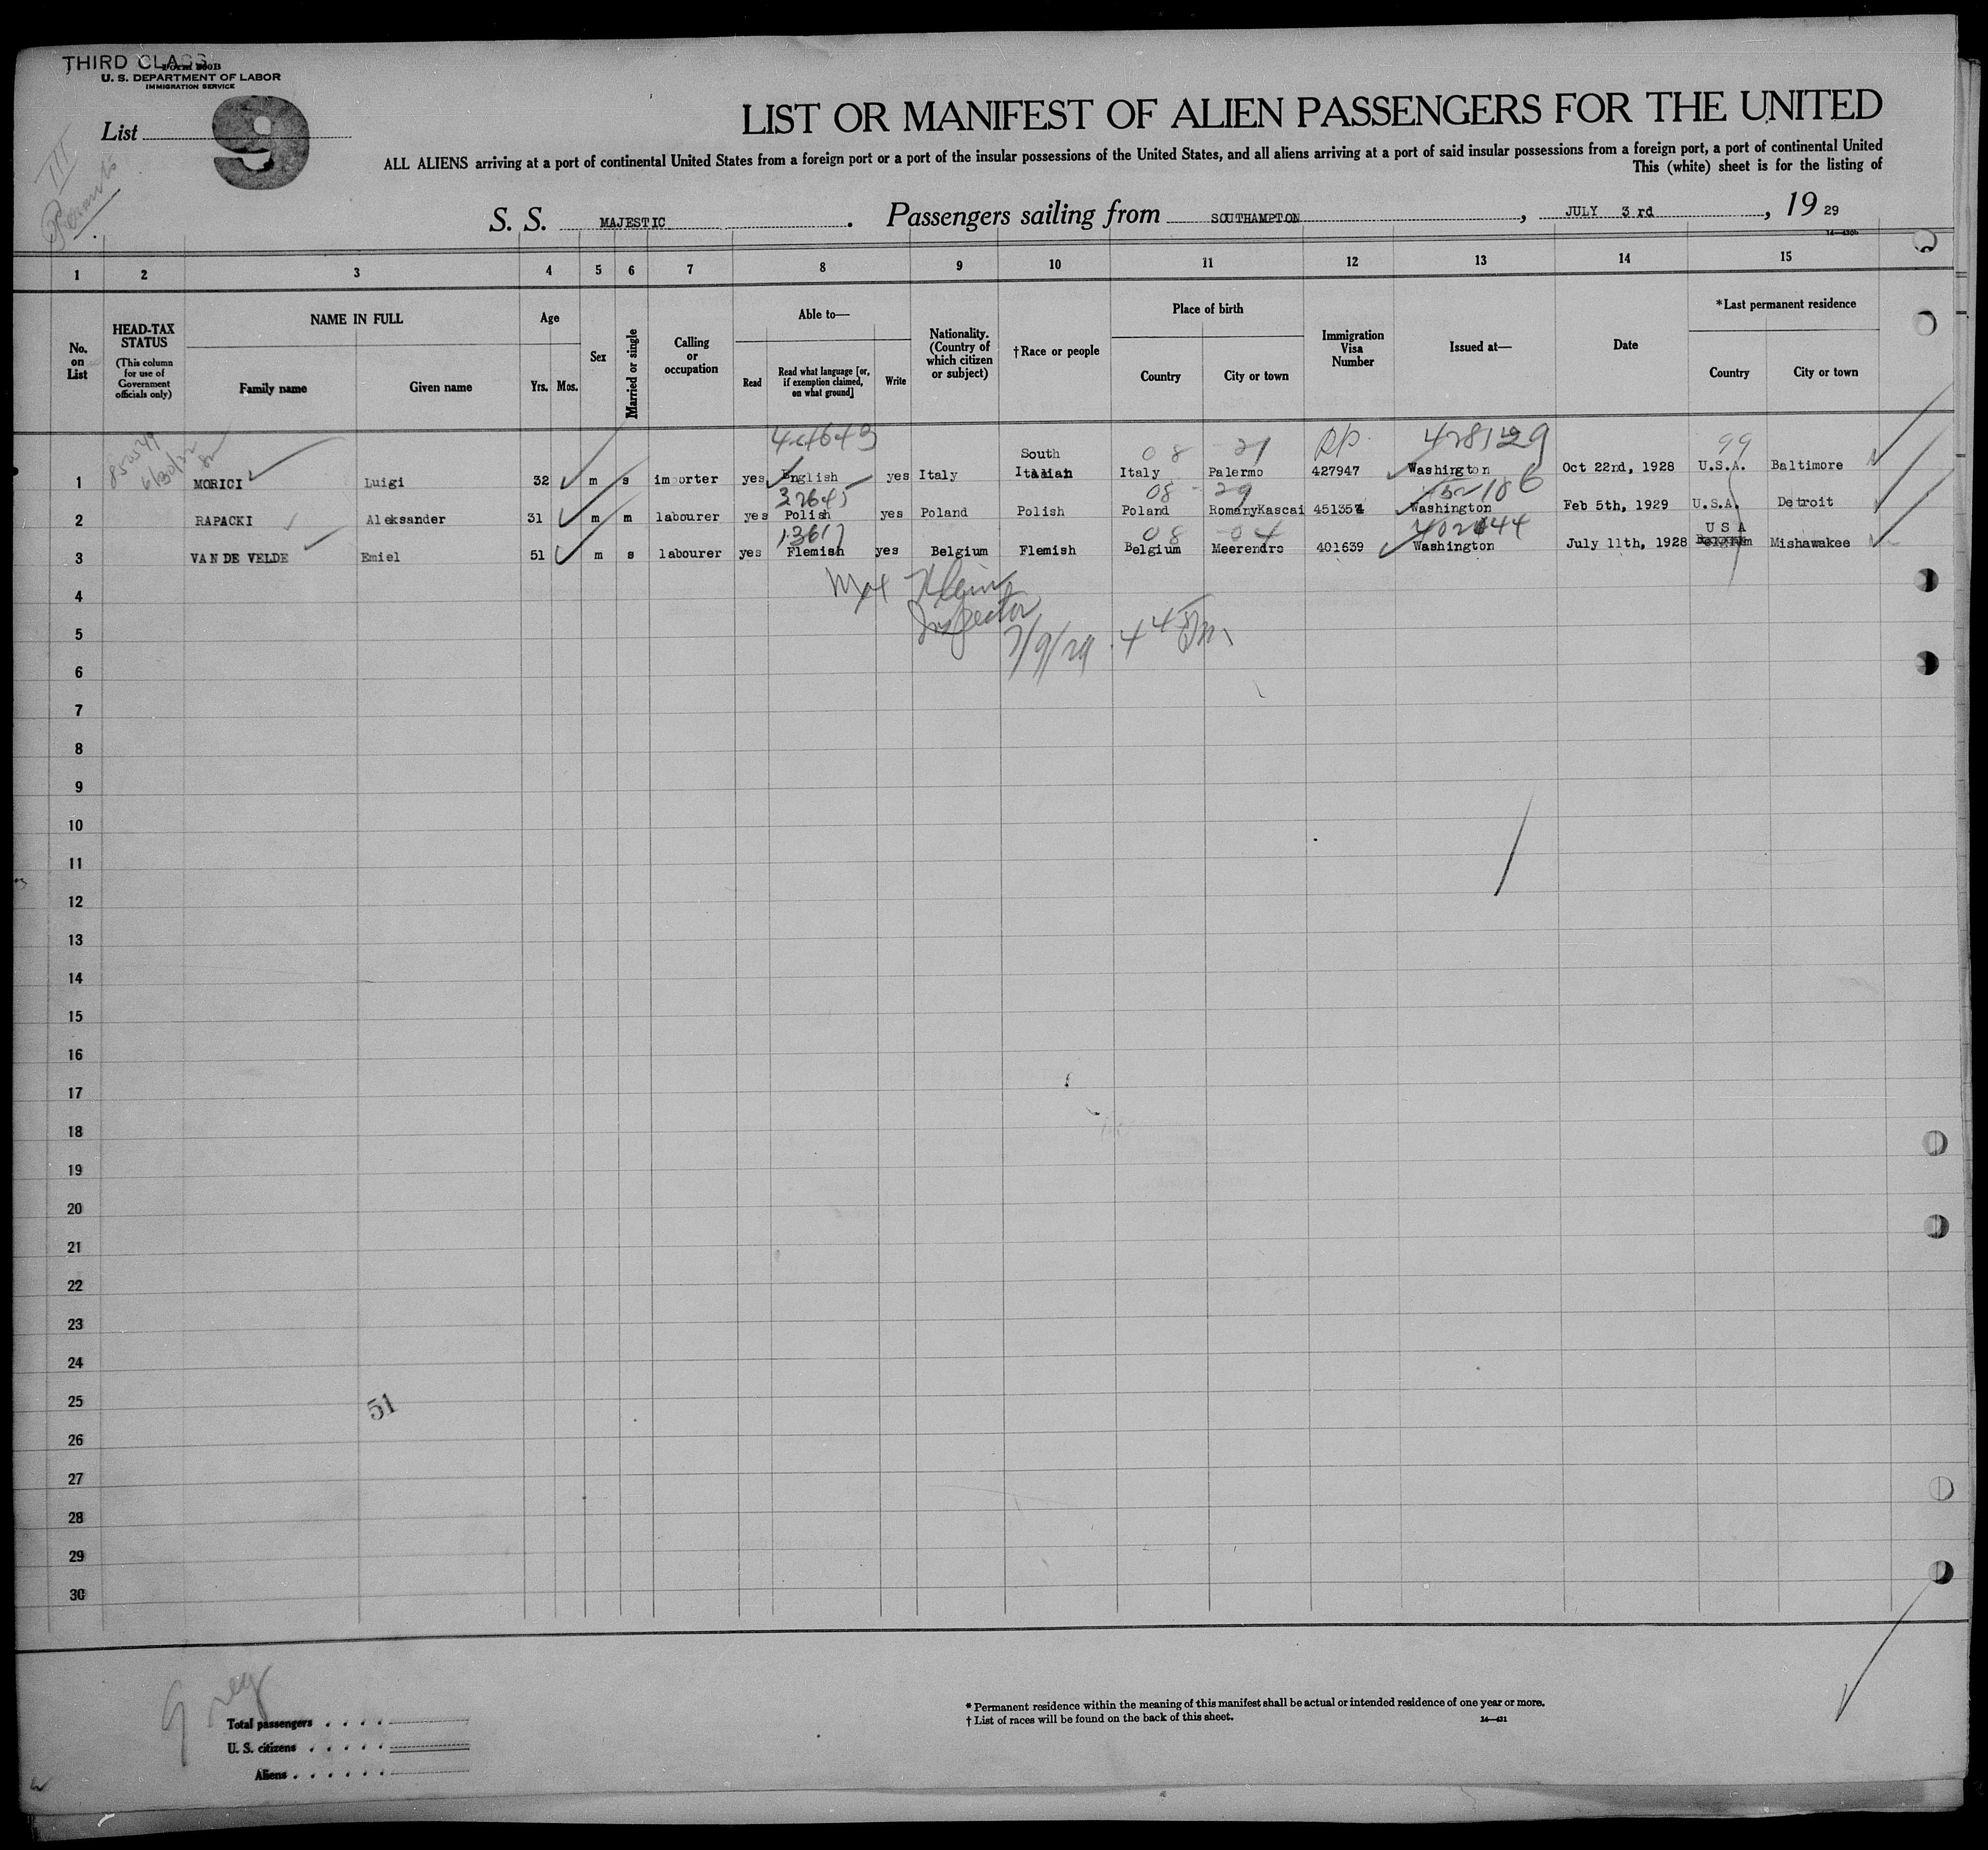 THIRD CLASS
Form 500B
U. S. DEPARTMENT OF LABOR
IMMIGRATION SERVICE
List 9
III
LIST OR MANIFEST OF ALIEN PASSENGERS FOR THE UNITED
ALL ALIENS arriving at a port of continental United States from a foreign port or a port of the insular possessions of the United States, and all aliens arriving at a port of said insular possessions from a foreign port, a port of continental United
This (white) sheet is for the listing of
S. S. MAJESTIC. Passengers sailing from SOUTHAMPTON, JULY 3rd, 19 29
1 2 3 4 5 6 7 8 9 10 11 12 13 14 15
No. on List
HEAD-TAX STATUS
(This column for use of Government officials only)
NAME IN FULL
Family name Given name
Age
Yrs. Mos.
Sex
Married or single
Calling or occupation
Able to—
Read
Read what language [or, if exemption claimed, on what ground]
Write
Nationality. (Country of which citizen or subject)
†Race or people
Place of birth
Country City or town
Immigration Visa Number
Issued at—
Date
*Last permanent residence
Country City or town
08 21 428129 99
South
1 MORICI Luigi 32 m s importer yes English yes Italy Italian Italy Palermo 427947 Washington Oct 22nd, 1928 U.S.A. Baltimore
32645 08 - 29
2 RAPACKI Aleksander 31 m m labourer yes Polish yes Poland Polish Poland RomanyKascai 451354 Washington Feb 5th, 1929 U.S.A. Detroit
13617 08 04 402444 U S A
3 VAN DE VELDE Emiel 51 m s labourer yes Flemish yes Belgium Flemish Belgium Meerendre 401639 Washington July 11th, 1928 Belgium Mishawakee
4
Max Klein
Inspector
5
7/9/29. 4 45 Pm.
6
7
8
9
10
11
12
13
14
15
16
17
18
19
20
21
22
23
24
25
51
26
27
28
29
30
Total passengers
U. S. citizens
Aliens
* Permanent residence within the meaning of this manifest shall be actual or intended residence of one year or more.
† List of races will be found on the back of this sheet.
14—431